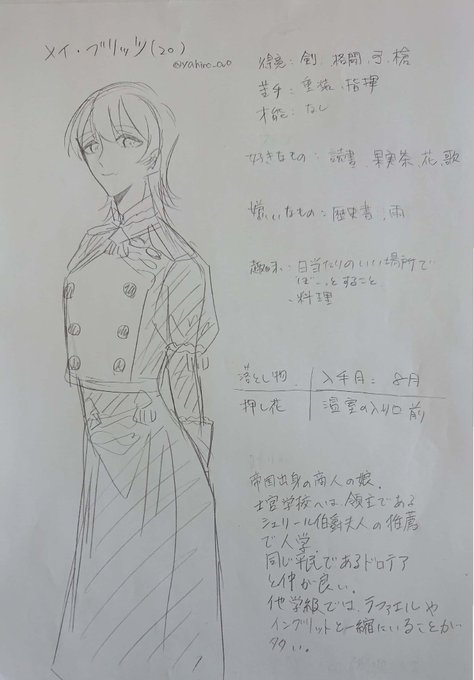 メイ・ブリッツ(20)
@yahiro_ovo
得意: 剣、格闘、弓、槍
苦手: 重装、指揮
才能: なし
好きなもの: 読書、果実茶、花、歌
嫌いなもの: 歴史書、雨
趣味: ・日当たりのいい場所で
ぼーっとすること
・料理
落とし物 入手月: 8月
押し花 温室の入り口前
帝国出身の商人の娘。
士官学校へは領主である
シュリール伯爵夫人の推薦
で入学。
同じ平民であるドロテア
と仲が良い。
他学級では、ラファエルや
イングリットと一緒にいることが
多い。